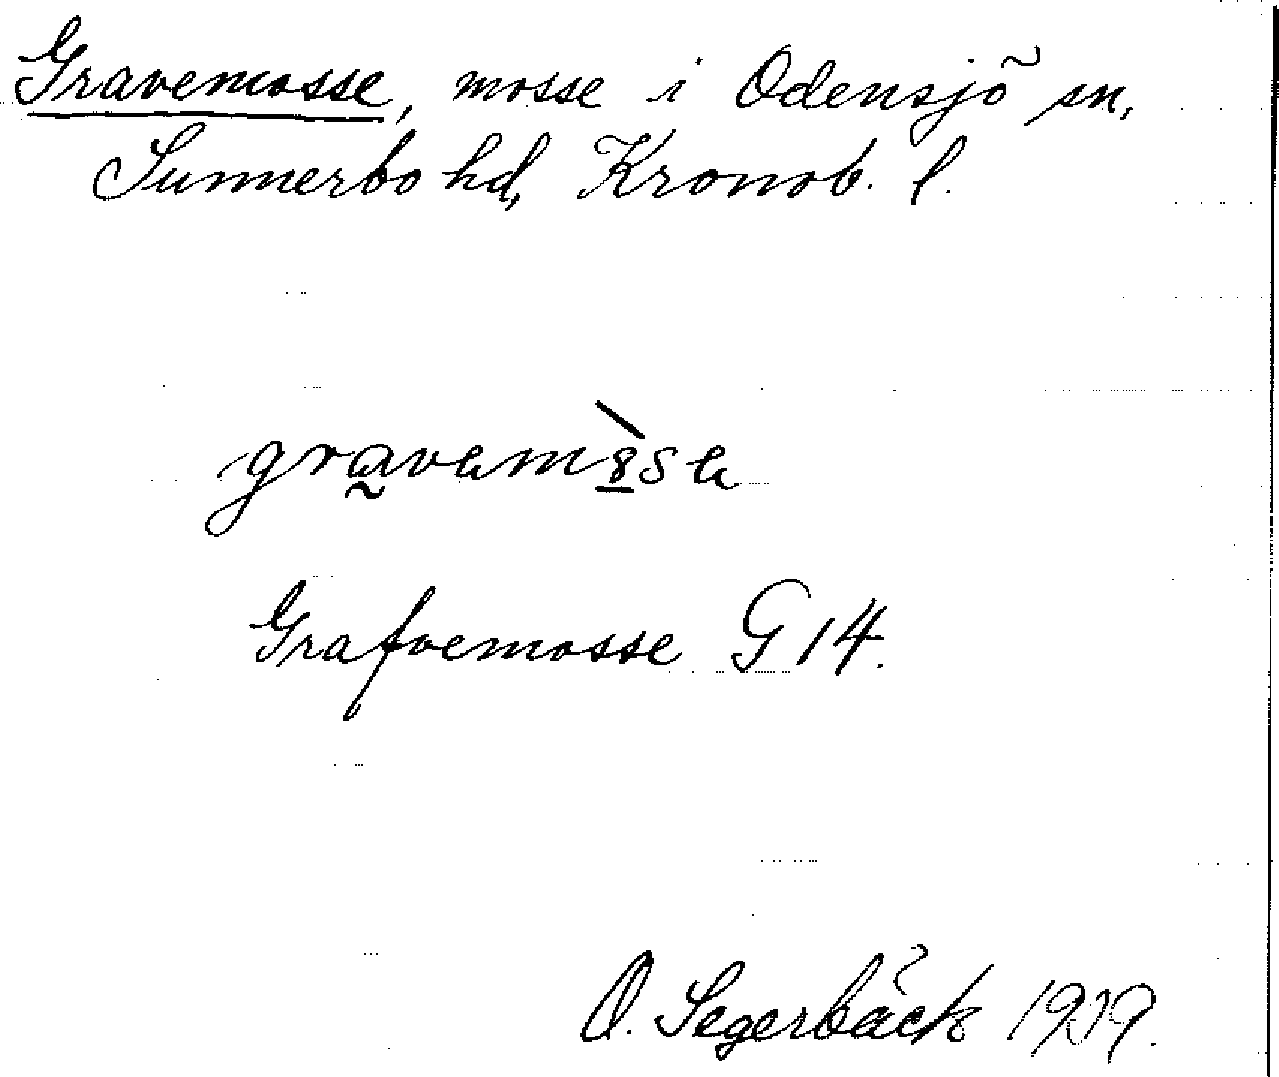 Gravemosse, mosse i Odensjö sn,
Sunnerbo hd, Kronob. l.
gravemòse
Grafvemosse G 14.
O. Segerbäck 1929.